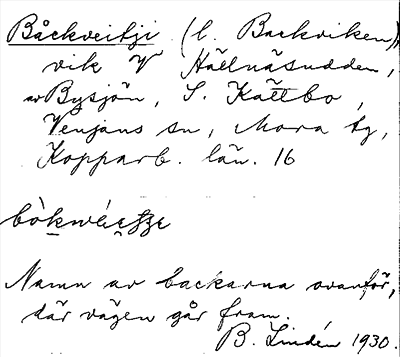 Båckveitji (l. Backviken),
vik V Hällnäsudden,
av Bysjön, S. Kättbo,
Venjans sn, Mora tg,
Kopparb. län. 16
Namn av backarna ovanför,
där vägen går fram.
B. Lindén 1930.